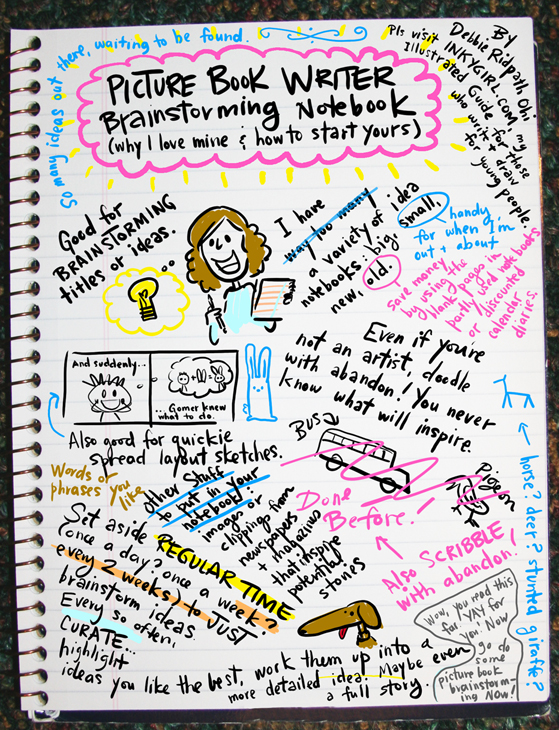 So many ideas out there, waiting to be found.
PICTURE BOOK WRITER
Brainstorming Notebook
(why I love mine & how to start yours)
BY
Debbie Ridpath Ohi
Pls visit INKYGIRL.COM, my
Illustrated Guide for those
who write & draw
for young people.
Good for
BRAINSTORMING
titles or ideas.
I have
way too many
a variety of idea
notebooks: big
small,
new, old.
handy
for when I'm
out + about
save money
by using the
blank pages in
partly used notebooks
or discounted
calendar
diaries.
And suddenly...
Gomer knew
what to do.
Also good for quickie
spread layout sketches.
Even if you're
not an artist, doodle
with abandon! You never
know what will inspire.
BUS
Pigeon
Done
Before.
Also SCRIBBLE
with abandon!
horse? deer? stunted giraffe?
Words or
phrases you
like
other stuff
to put in your
notebook:
images or
clipping from
newspapers
+ magazines
that inspire
potential
stories
Set aside REGULAR TIME
(once a day? once a week?
every 2 weeks) to JUST
brainstorm ideas.
Every so often,
CURATE...
highlight
ideas you like the best, work them up into a
more detailed idea. Maybe even
a full story
Wow, you read this
far. YAY for
you. Now
go do
some
picture book
brainstorm-
ing NOW!